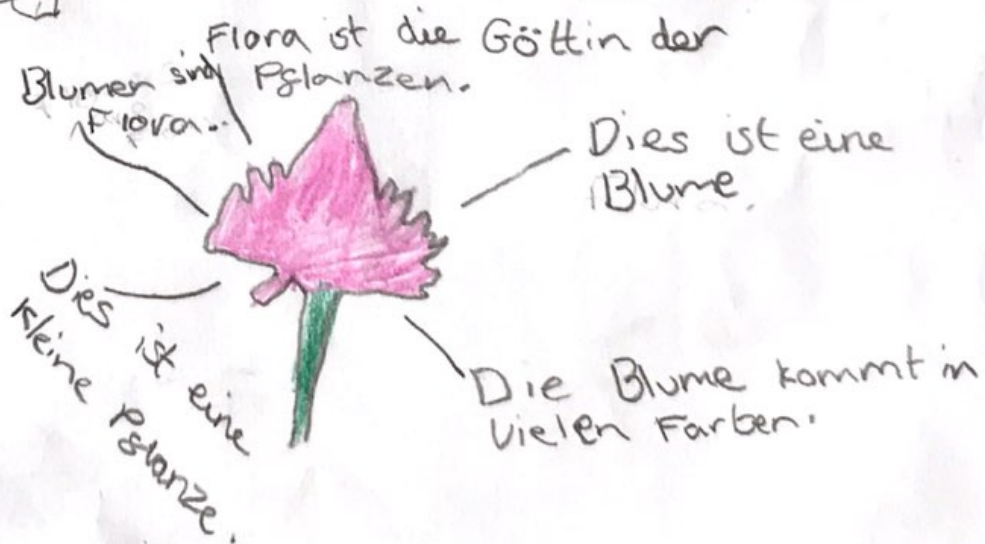 Flora ist die Göttin der
Pflanzen.
Blumen sind
Flora..
Dies ist eine
Blume.
Dies ist eine
kleine Pflanze.
Die Blume kommt in
vielen Farben.